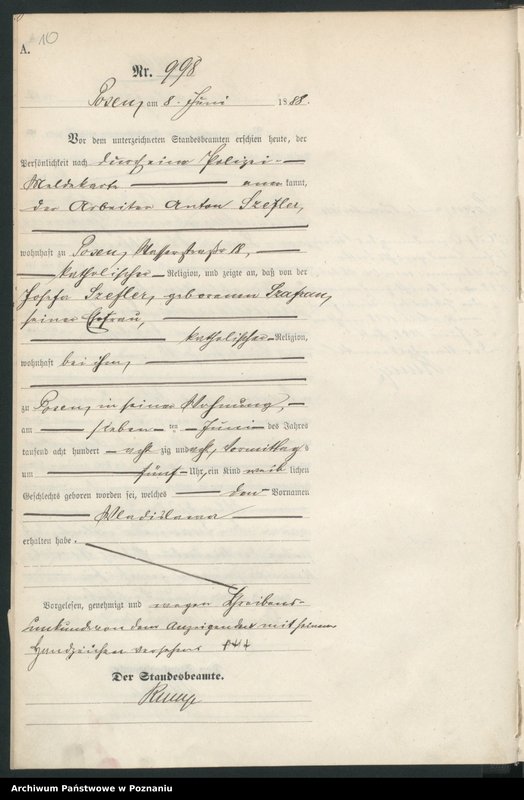 A. 10
Nr. 998
Posen, am 8. Juni 1888.
Vor dem unterzeichneten Standesbeamten erschien heute, der
Persönlichkeit nach durch eine Polizei-
Meldekarte aner kannt,
der Arbeiter Anton Szefler,
wohnhaft zu Posen, Wasserstraße 18,
katholischer Religion, und zeigte an, daß von der
Josefa Szefler, geborenen Szafran,
seiner Ehefrau,
katholischer Religion,
wohnhaft bei ihm,
zu Posen, in seiner Wohnung,
am sieben ten Juni des Jahres
tausend acht hundert acht zig und acht, Vormittag s
um fünf Uhr, ein Kind weib lichen
Geschlechts geboren worden sei, welches den Vornamen
Wladislawa
erhalten habe.
Vorgelesen, genehmigt und wegen Schreibens-
unkunde von dem Anzeigenden mit seinem
Handzeichen versehen +++
Der Standesbeamte.
Archiwum Państwowe w Poznaniu